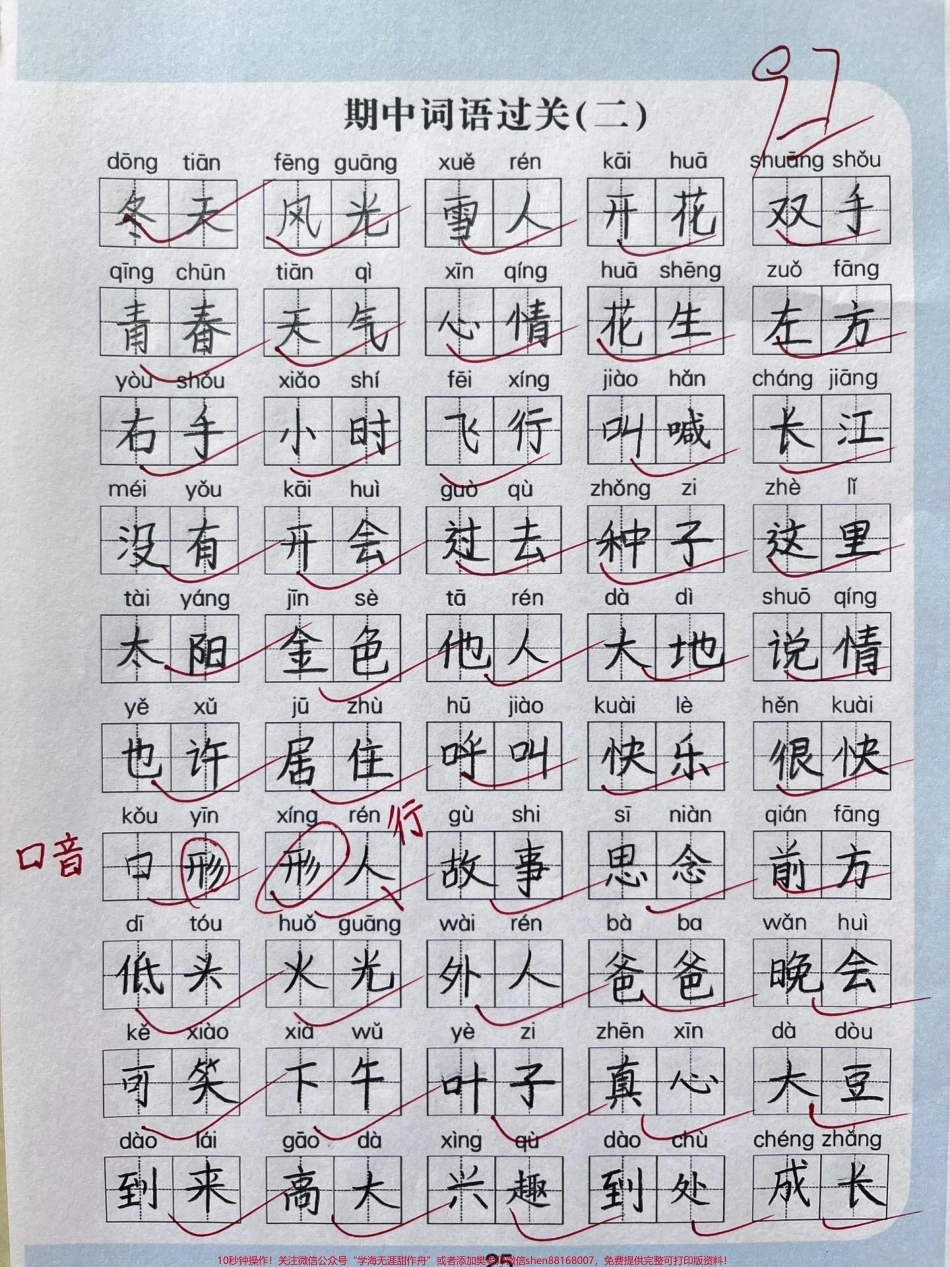 97
期中词语过关(二)
dōng tiān fēng guāng xuě rén kāi huā shuāng shǒu
冬天 风光 雪人 开花 双手
qīng chūn tiān qì xīn qíng huā shēng zuǒ fāng
青春 天气 心情 花生 左方
yòu shǒu xiǎo shí fēi xíng jiào hǎn cháng jiāng
右手 小时 飞行 叫喊 长江
méi yǒu kāi huì guò qù zhǒng zi zhè lǐ
没有 开会 过去 种子 这里
tài yáng jīn sè tā rén dà dì shuō qíng
太阳 金色 他人 大地 说情
yě xǔ jū zhù hū jiào kuài lè hěn kuài
也许 居住 呼叫 快乐 很快
kǒu yīn xíng rén gù shi sī niàn qián fāng
行
口音 口形 形人 故事 思念 前方
dī tóu huǒ guāng wài rén bà ba wǎn huì
低头 火光 外人 爸爸 晚会
kě xiào xià wǔ yè zi zhēn xīn dà dòu
可笑 下午 叶子 真心 大豆
dào lái gāo dà xìng qù dào chù chéng zhǎng
到来 高大 兴趣 到处 成长
25